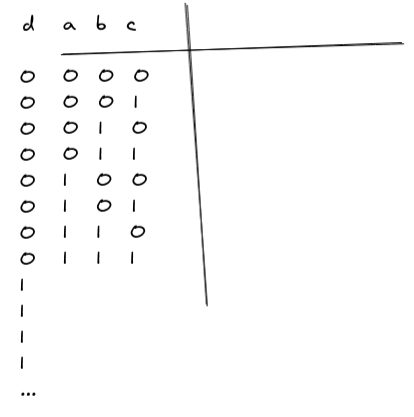 d a b c
0 0 0 0
0 0 0 1
0 0 1 0
0 0 1 1
0 1 0 0
0 1 0 1
0 1 1 0
0 1 1 1
1
1
1
1
...